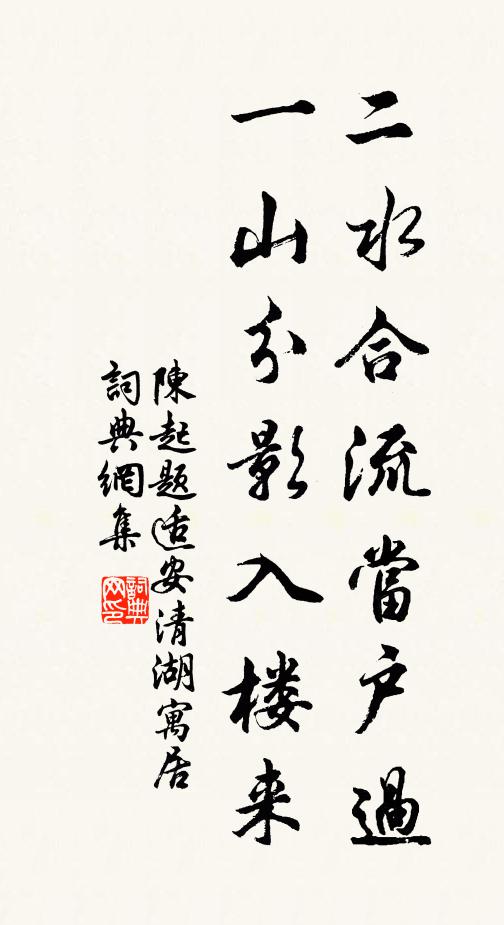 二水合流當户過
一山分影入楼来
陳起题适安清湖寓居
詞典網集
詞典网印